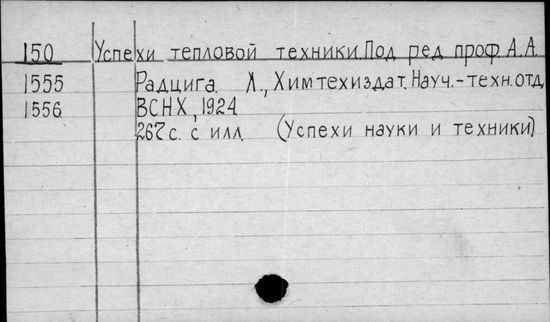 150 Успехи тепловой техники. Под ред проф А.А.
1555 Радцига. Л., Химтехиздат. Науч.-техн.отд
1556 ВСНХ, 1924
267 с. с илл. (Успехи науки и техники)